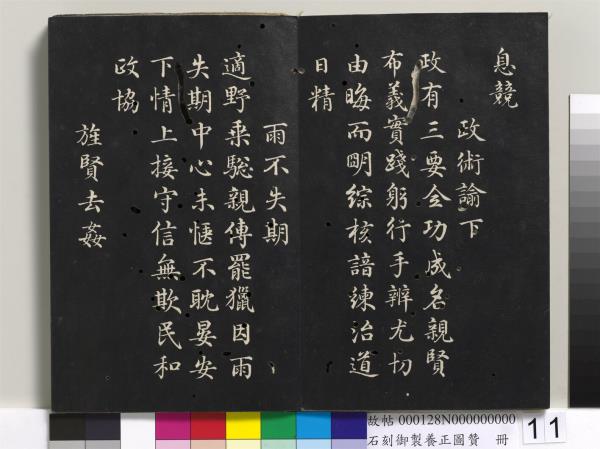 息競
政術諭下
政有三要会功成名親賢
布義實踐躬行手辨尤切
由晦而明綜核諳練治道
日精
雨不失期
適野乘驄親傳罷獵因雨
失期中心未愜不耽晏安
下情上接守信無欺民和
政協
旌賢去姦
故帖 000128N000000000
石刻御製養正圖贊 冊
11